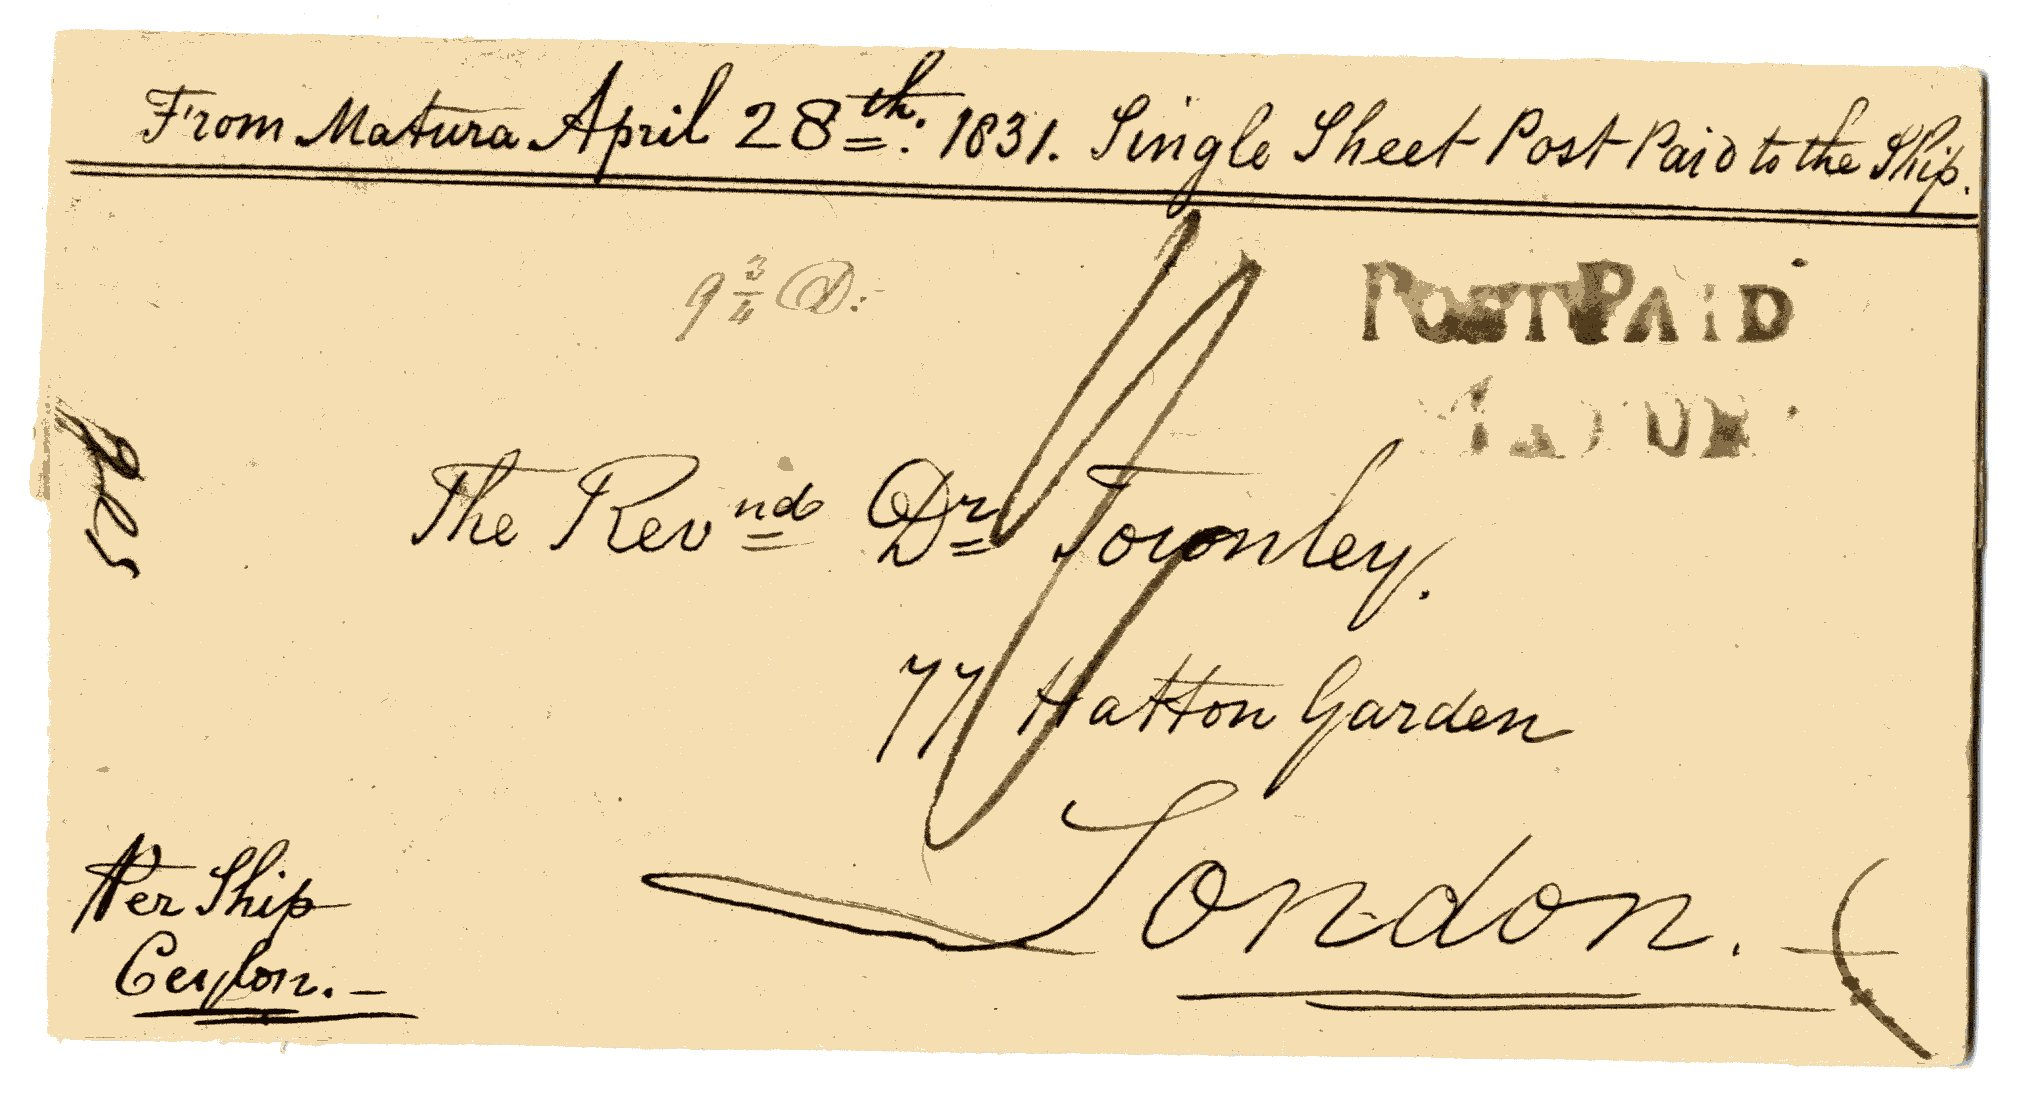 From Matura April 28th. 1831. Single Sheet Post Paid to the Ship.
9 3/4 D:-
POST PAID
The Revnd Dr Townley.
77 Hatton Garden
London. -
Per Ship
Ceylon. -